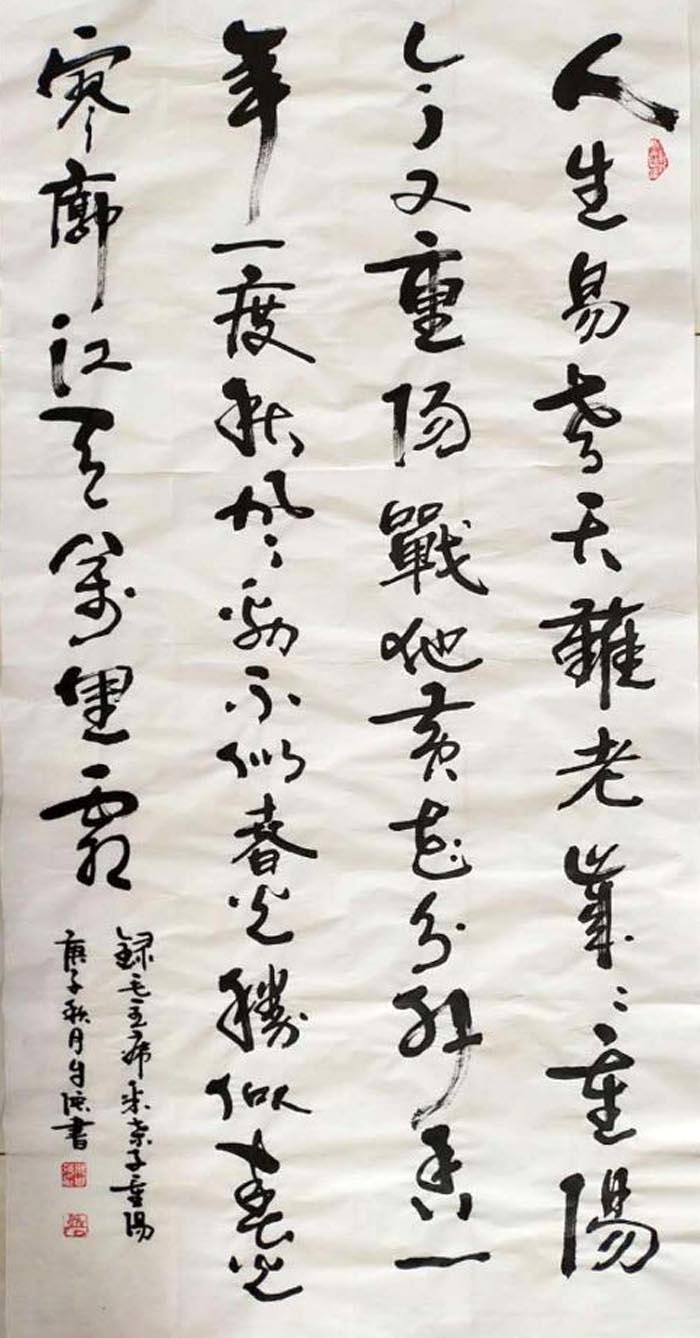 人生易老天難老歲々重陽
今又重陽戰地黄花分外香一
年一度秋風勁不似春光勝似春光
寥廓江天萬里霜
録毛主席采桑子重陽
庚子秋月書